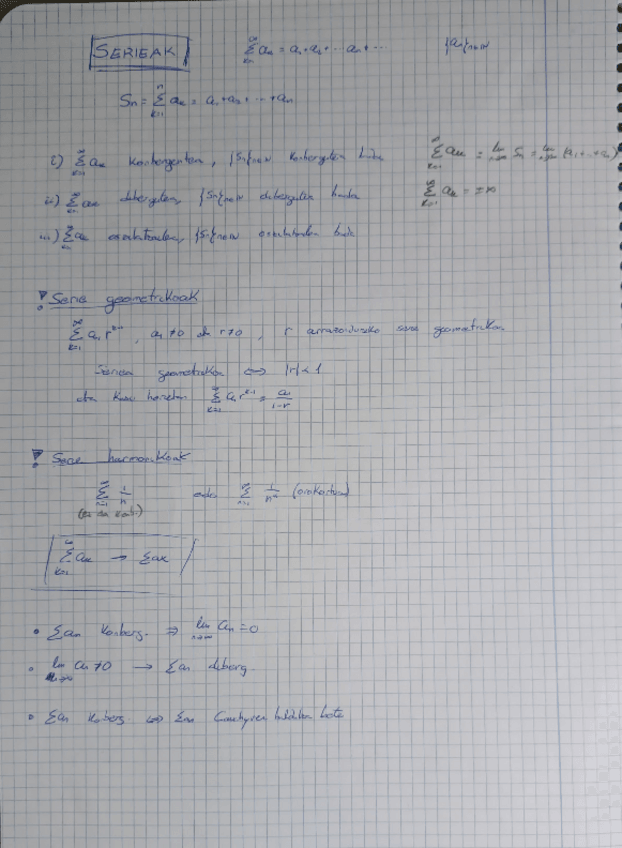 SERIEAK  ∞∑k=1 ak = a1 + a2 + ... an + ...  {an}n∈ℕ
Sn = n∑k=1 ak = a1 + a2 + ... + an
i) ∞∑k=1 ak konbergentea, {Sn}n∈ℕ konbergentea bada  ∞∑k=1 ak = lim n→∞ Sn = lim n→∞ (a1 + ... + an)
ii) ∞∑k=1 ak dibergentea, {Sn}n∈ℕ dibergentea bada  ∞∑k=1 ak = ±∞
iii) ∞∑k=1 ak oszilatzailea, {Sn}n∈ℕ oszilatzailea bada
Serie geometrikoak
∞∑k=1 a1 r^k-1, a1 ≠ 0 eta r ≠ 0, r arrazoiduneko serie geometrikoa
geometrikoa ⇔ |r| < 1
eta kasu horretan ∞∑k=1 a1 r^k-1 = a1/1-r
Serie harmonikoak
∞∑n=1 1/n edo ∞∑n=1 1/n^α (orokortua)
(ez da konb.)
∞∑k=1 ak → ∑ak
• ∑an konberg. ⇒ lim n→∞ an = 0
• lim n→∞ an ≠ 0 → ∑an diberg.
• ∑an konberg ⇔ ∑an Cauchyren baldintza bete